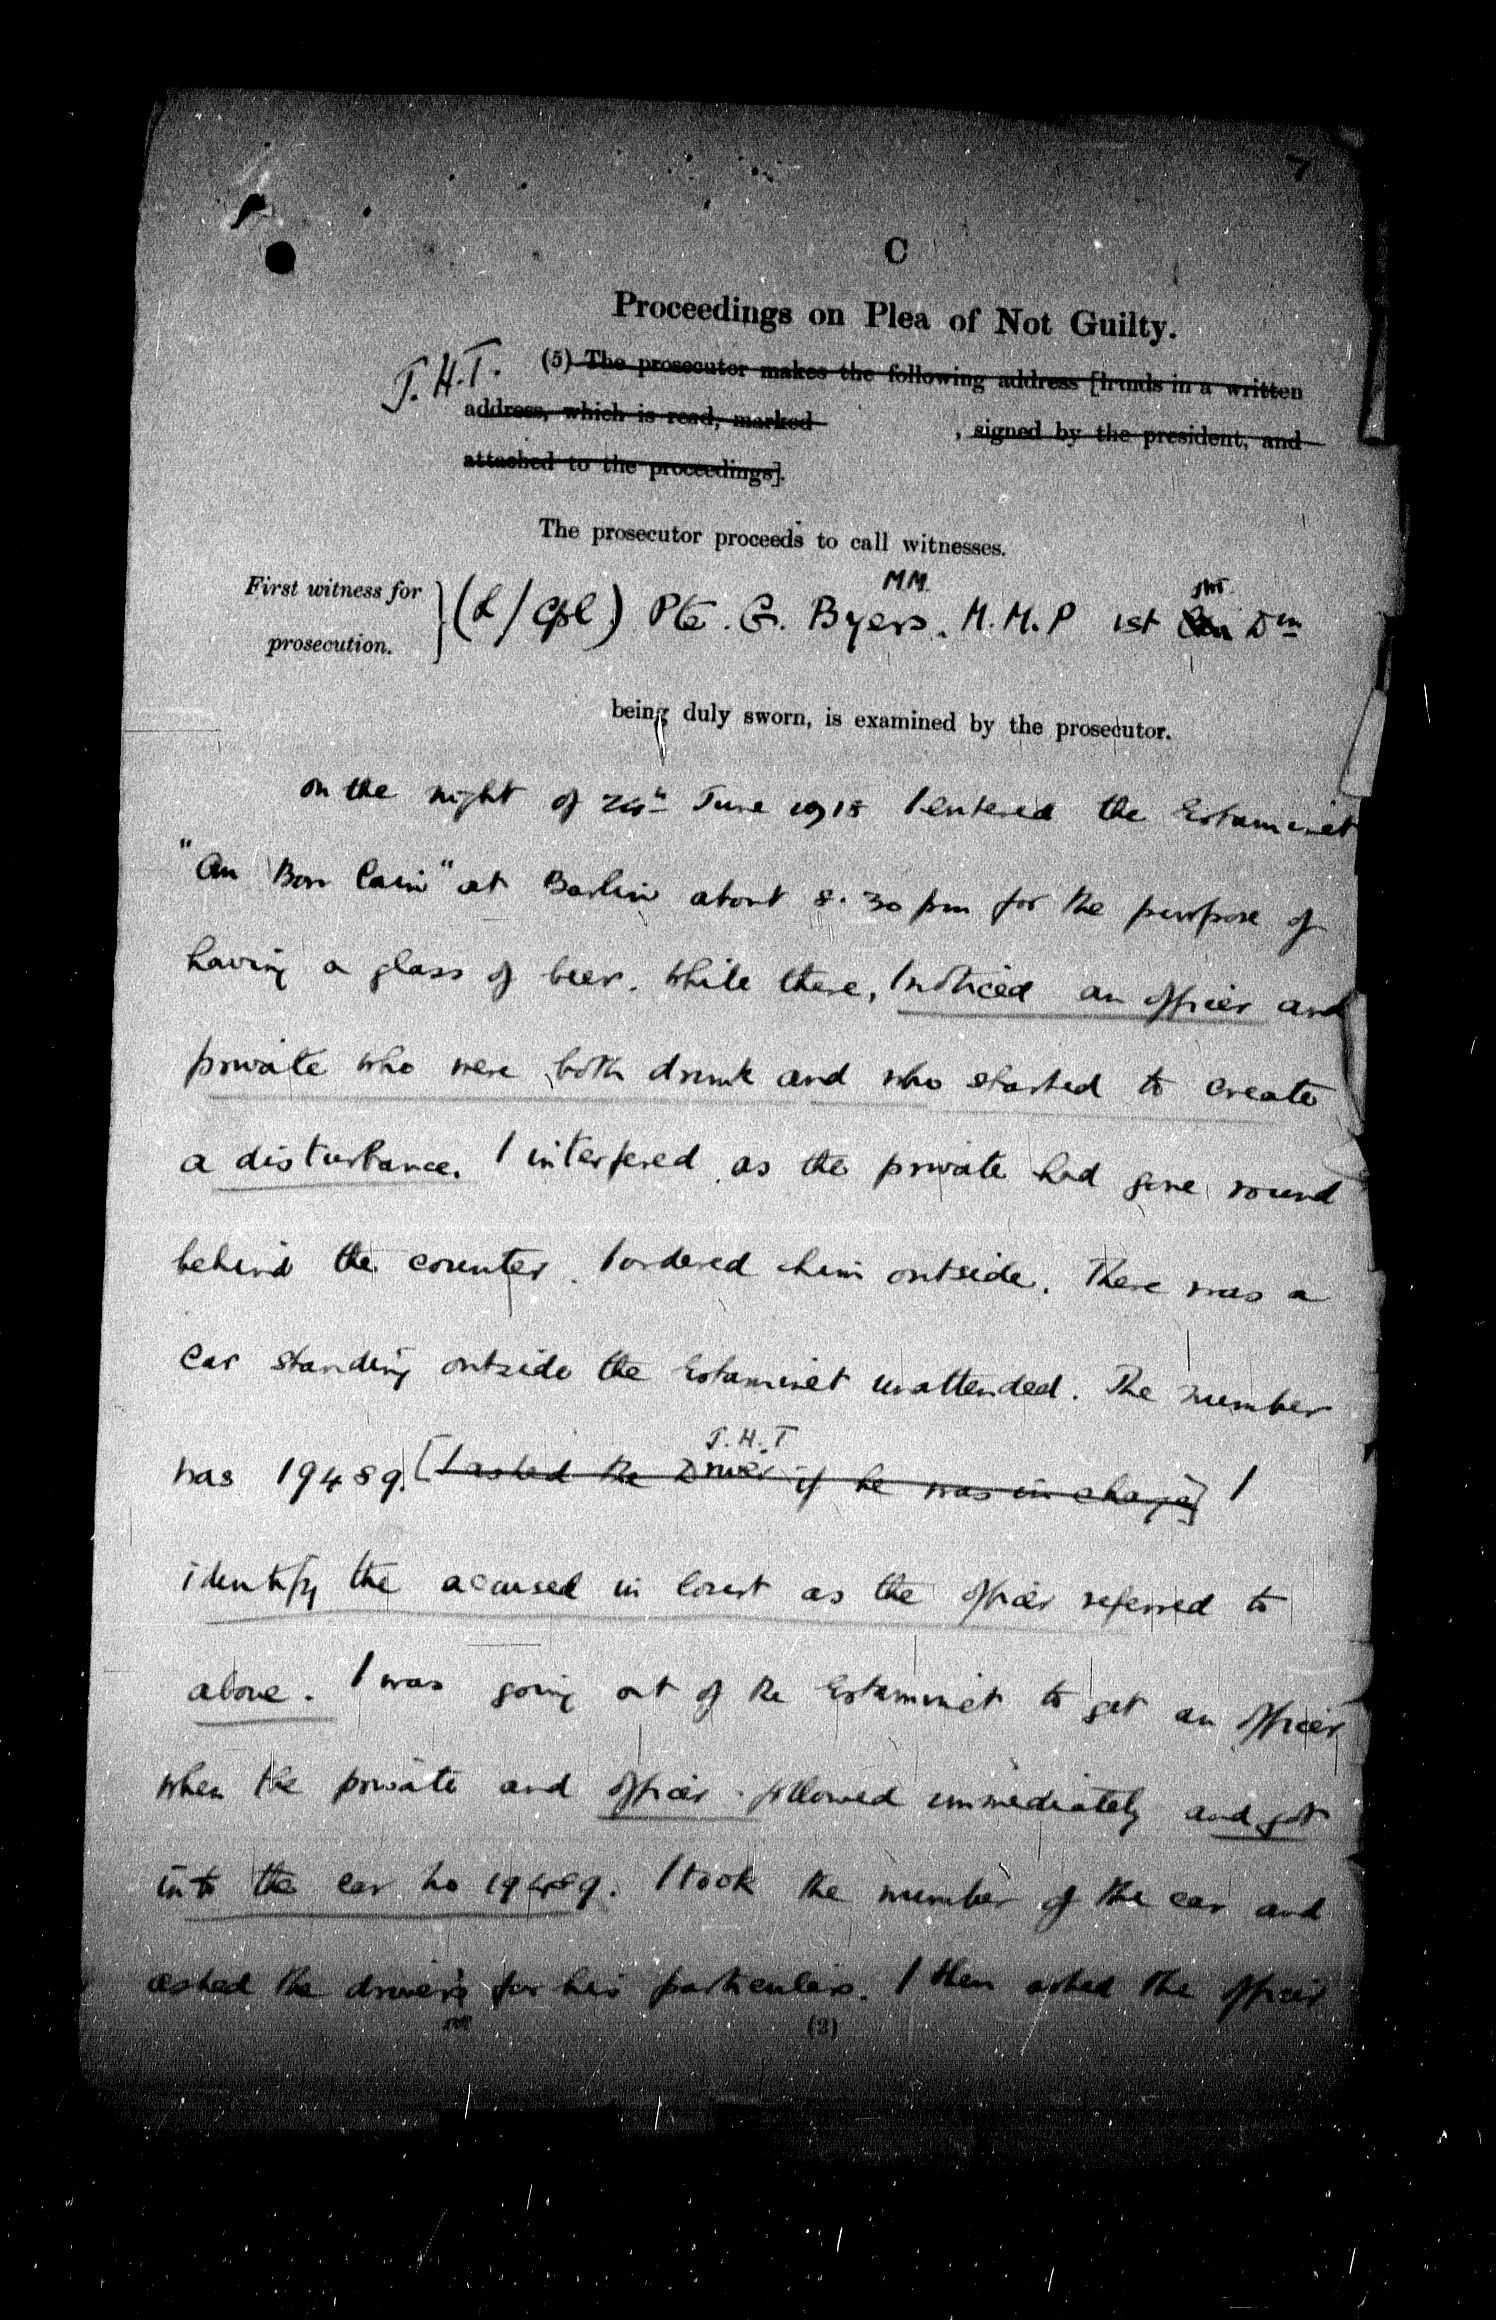 7
C
Proceedings on Plea of Not Guilty.
J.H.T. (5) The prosecutor makes the following address [hands in a written
address, which is read, marked , signed by the president, and
attached to the proceedings].
The prosecutor proceeds to call witnesses.
First witness for
prosecution. } (L/Cpl) Pte. G. Byers. M.M. M.M.P 1st Dn
being duly sworn, is examined by the prosecutor.
on the night of 24th June 1918 I entered the Estaminet
"Au Bon Coin" at Barlin about 8.30 pm for the purpose of
having a glass of beer. While there, I noticed an officer and
private who were both drunk and who started to create
a disturbance. I interfered as the private had gone round
behind the counter. I ordered him outside. There was a
car standing outside the Estaminet unattended. The number
J.H.T
was 19489. [I asked the Driver if he was in charge] I
identify the accused in Court as the officer referred to
above. I was going out of the Estaminet to get an officer
when the private and officer followed immediately and got
into the car no 19489. I took the number of the car and
asked the driver for his particulars. I then asked the officer
(2)